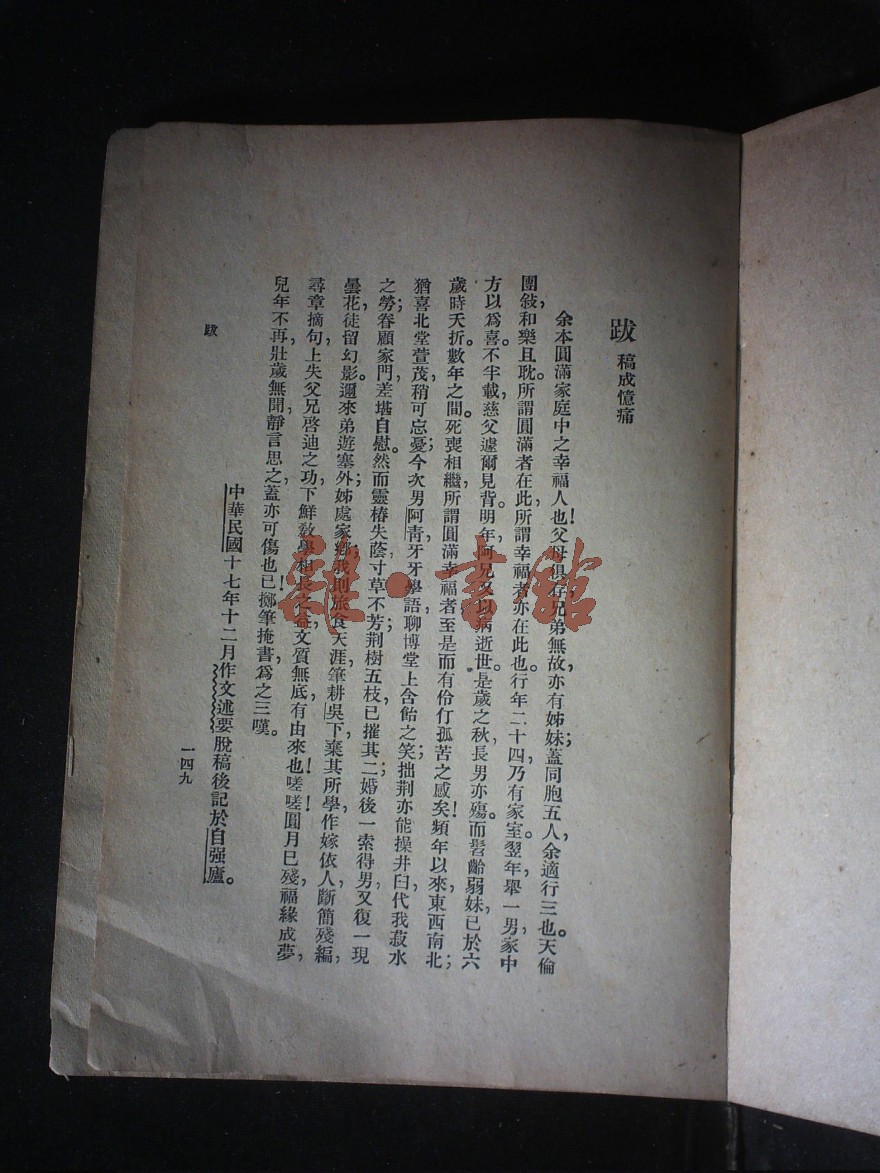 跋 稿成憶痛
余本圓滿家庭中之幸福人也！父母俱存，兄弟無故，亦有姊妹；蓋同胞五人，余適行三也。天倫
團敍，和樂且耽。所謂圓滿者在此，所謂幸福者亦在此也。行年二十四，乃有家室。翌年，舉一男，家中
方以爲喜。不半載，慈父遽爾見背。明年，阿兄又以病逝世。是歲之秋，長男亦殤。而髫齡弱妹，已於六
歲時夭折。數年之間，死喪相繼，所謂圓滿幸福者，至是而有伶仃孤苦之感矣！頻年以來，東西南北；
猶喜北堂萱茂，稍可忘憂；今次男阿青，牙牙學語，聊博堂上含飴之笑；拙荆亦能操井臼，代我菽水
之勞；眷顧家門，差堪自慰。然而靈椿失蔭，寸草不芳；荆樹五枝，已摧其二；婚後一索得男，又復一現
曇花，徒留幻影。邇來弟遊塞外；姊處家鄉；我則旅食天涯，筆耕吳下，棄其所學，作嫁依人，斷簡殘編，
尋章摘句，上失父兄啓迪之功，下鮮敎學相長之益，文質無底，有由來也！嗟嗟！圓月已殘，福緣成夢，
兒年不再，壯歲無聞，靜言思之，蓋亦可傷也已！擲筆掩書，爲之三嘆。
中華民國十七年十二月作文述要脫稿後記於自强廬。
跋
一四九
雜·書館